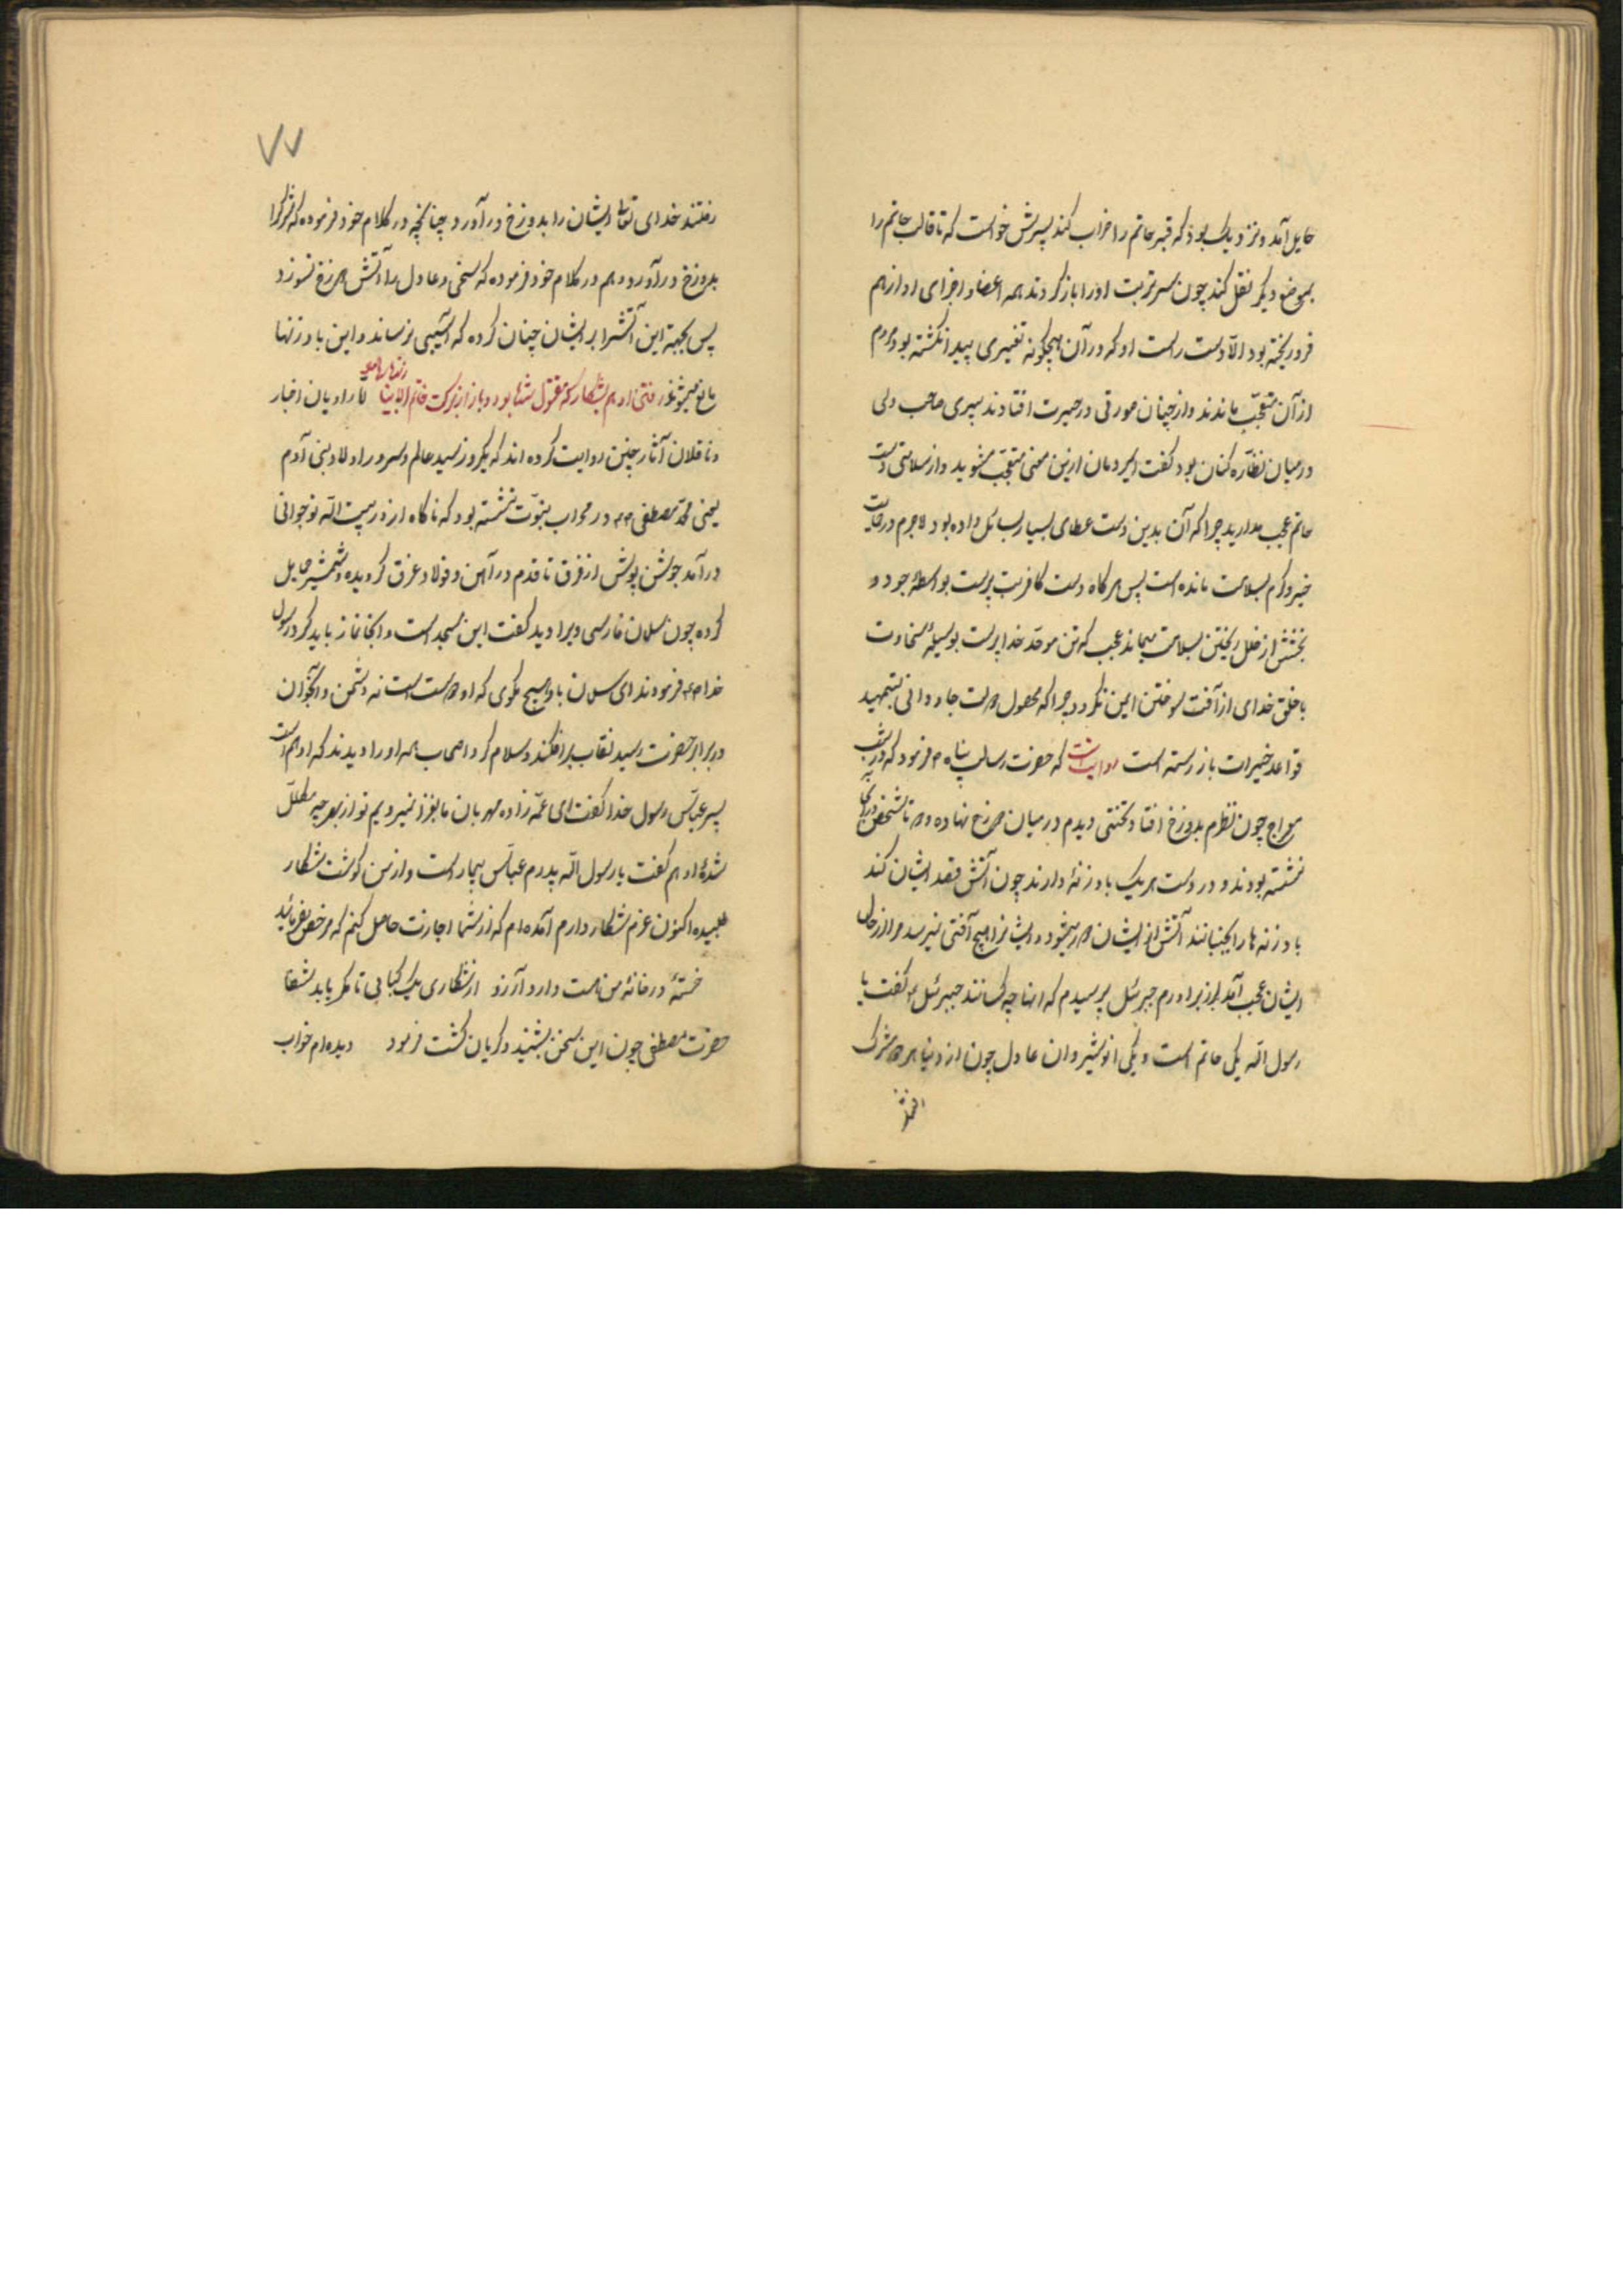 حایل آمد و نزدیک بود که قبر حاتم را خراب کند پسرش خواست که تا قالب حاتم را
بموضع دیگر نقل کند چون سر تربت او را باز کردند همه اعضا و اجزای او از هم
فرو ریخته بود الّا دست راست او که در آن هیچگونه تغییری پیدا نگشته بود مردم
از آن متعجّب ماندند و از چنان صورتی در حیرت افتادند پیری صاحب دلی
در میان نظّاره کنان بود گفت ایمردمان ازین معنی متعجّب مشوید و از سلامتی دست
حاتم عجب مدارید چرا که آن بدین دست عطای بسیار بسائل داده بود لاجرم در حمایت
خیر و کرم بسلامت مانده است پس هر گاه دست کافر بت پرست بواسطهٔ جود و
بخشش از خلل ریختن بسلامت بماند عجب که تن موحّد خدا پرست بوسیلهٔ سخاوت
با خلق خدای از آفت سوختن ایمن نگردد چرا که محصول دولت جاودانی بتمهید
قواعد خیرات باز بسته است روایت است که حضرت رسالت پناه ص فرمود که در شب
معراج چون نظرم بدوزخ افتاد تختی دیدم در میان دوزخ نهاده و دو تا شخص در آنجا
نشسته بودند و در دست هر یک بادزنهٔ دارند چون آتش قصد ایشان کند
بادزنه ها را بجنبانند آتش از ایشان دور میشود و ایشانرا هیچ آفتی نمیرسد مرا از حال
ایشان عجب آمد از برادرم جبرئیل پرسیدم که اینها چه کسانند جبرئیل ع گفت یا
رسول اللّه یکی حاتم است و یکی انوشیروان عادل چون از دنیا هر دو مشرک
رفتند
۷۷
رفتند خدای تعالی ایشان را بدوزخ در آورد چنانچه در کلام خود فرموده که مشرک را
بدوزخ در آورد و هم در کلام خود فرموده که سخی و عادل را آتش دوزخ نسوزد
پس بجهة این آتشرا بر ایشان چنان کرده که آسیبی نرساند و این بادزنها
مانع میشوند رفتن ادهم بشکار که مقتول شده بود و باز از برکت خاتم الانبیا امّا راویان اخبار
زنده شد
و ناقلان آثار چنین روایت کرده اند که یکروز سید عالم و سرور اولاد بنی آدم
یعنی محمّد مصطفی ص در محراب نبوّت نشسته بود که ناگاه از در بیت اللّه نوجوانی
در آمد جوشن پوش از فرق تا قدم در آهن و فولاد غرق گردیده و شمشیر حمایل
کرده چون سلمان فارسی ویرا دید گفت این مسجد است و اینجا نماز باید کرد رسول
خدا ص فرمودند ای سلمان با او هیچ مگوی که او دوست است نه دشمن و آنجوان
در برابر حضرت رسید نقاب بر افکند و سلام کرد اصحاب همه او را دیدند که ادهم است
پسر عبّاس رسول خدا گفت ای عمّ زاده مهربان ما بغزا نمیرویم تو از بهر چه مکمّل
شدهٔ ادهم گفت یا رسول اللّه پدرم عبّاس بیمار است و از من گوشت شکار
طلبیده اکنون عزم شکار دارم آمده ام که از شما اجازت حاصل کنم که مرخص بفرمائید
خستهٔ در خانهٔ من هست دارد آرزو از شکاری یک کبابی تا مگر یابد شفا
حضرت مصطفی چون این سخن بشنید و گریان گشت فرمود دیده ام خواب